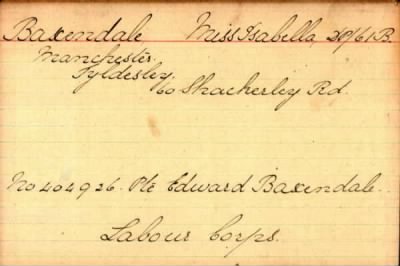 Baxendale Miss Isabella, 2/9/61B.
Manchester.
Tyldesley.
60 Shackerley Rd.
No 404926. Pte Edward Baxendale.
Labour Corps.